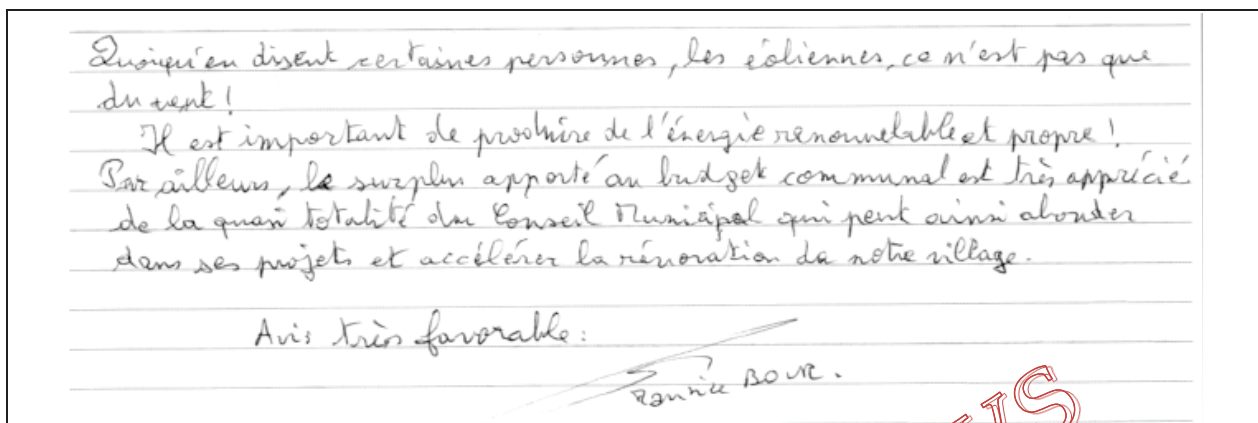 Quoiqu'en disent certaines personnes, les éoliennes, ce n'est pas que
du vent !
Il est important de produire de l'énergie renouvelable et propre !
Par ailleurs, le surplus apporté au budget communal est très apprécié
de la quasi totalité du Conseil Municipal qui peut ainsi abonder
dans ses projets et accélérer la rénovation de notre village.
Avis très favorable :
BOUR.